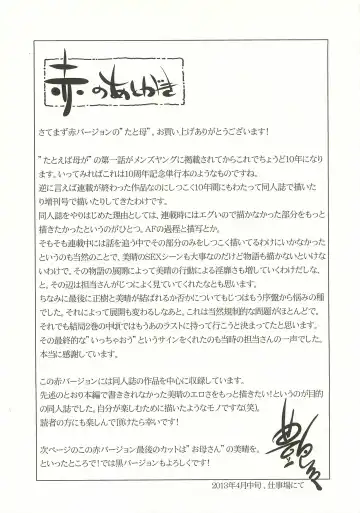 赤のあとがき
さてまず赤バージョンの"たと母"、お買い上げありがとうございます!
"たとえば母が"の第一話がメンズヤングに掲載されてからこれでちょうど10年になり
ます。いってみればこれは10周年記念単行本のようなものですね。
逆に言えば連載が終わった作品なのにしつこく10年間にもわたって同人誌で描いた
り増刊号で描いたりしてきたわけで。
同人誌をやりはじめた理由としては、連載時にはエグいので描かなかった部分をもっ
と描きたかったというのがひとつ。AFの過程と描写とか。
そもそも連載中には話を追う中でその部分のみをしつこく描いてるわけにいかなかった
というのも当然のことで、美晴のSEXシーンも大事なのだけど物語も描かないといけな
いわけで、その物語の展開によって美晴の行動による淫靡さも増していくわけだしな、
と、その辺は担当さんがじつによく見ていてくれたなとも思います。
ちなみに最後に正樹と美晴が結ばれるか否かについてもじつはもう序盤から悩みの種
でした。それによって展開も変わるしなあと、これは当然規制的な問題がほとんどで、
それでも結局2巻の中頃ではもうあのラストに持って行こうと決まってたと思います。
その最終的な"いっちゃおう"というサインをくれたのも当時の担当さんの一声でした。
本当に感謝しています。
この赤バージョンには同人誌の作品を中心に収録しています。
先述のとおり本編で書ききれなかった美晴のエロさをもっと描きたい!というのが目的
の同人誌でした。自分が楽しむために描いたようなモノですな(笑)。
読者の方にも楽しんで頂けたら幸いです!
次ページのこの赤バージョン最後のカットは"お母さん"の美晴を。
といったところで!では黒バージョンもよろしくです!
2013年4月中旬、仕事場にて